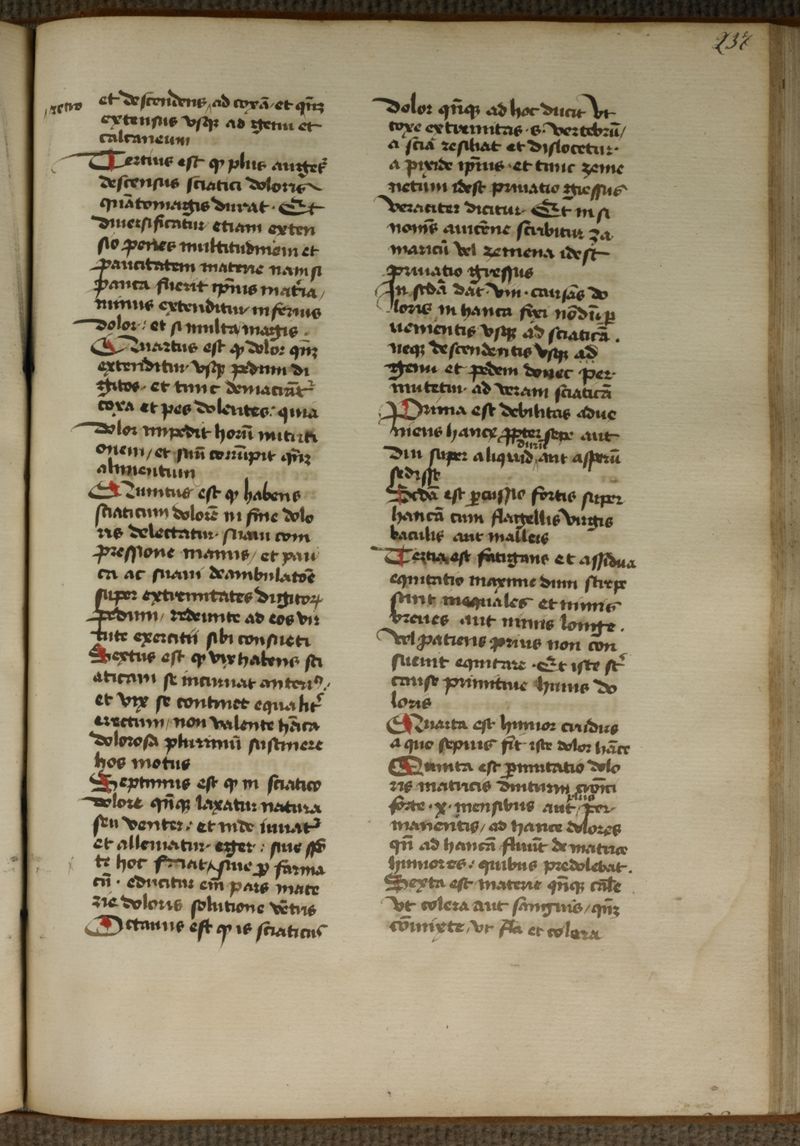 237
retro
et descendens, ad coxā et qn̄qꝫ
extensus vsqꝫ ad genu et
calcaneum
Tertius est qꝫ plus augetꝰ
descensus sciatici doloris
quātomagis durat. Et
diuersificatur etiam exten
sio penes multitudinem et
paucitatem materie nam si
pauca fuerit ipsius mat̄ia,
minus extenditur inferius
dolor: et si multa magis.
Quartus est qꝫ dolor qn̄qꝫ
extenditur vsqꝫ pedum di
gitos. et tunc demaciāt᷑
coxa et pes dolentes: quia
dolor impedit horū nutriti
onem, et suū corrūpit qn̄qꝫ
alimentum
Quintus est qꝫ habens
sciaticum dolorē in fine dolo
ris delectatur. suaui com
pressione manus, et pau
ca ac suaui deambulatōe
super extremitates digitoꝝ
pedum, redeunte ad eos vir
tute exercitii sibi consueti
Sextus est qꝫ vix habens sci
aticam se incuruat anteriꝰ,
et vix se continet equalit᷑
erectum, non valente hāca
dolorosa plurimū sustinere
hos motus
Septimus est qꝫ in sciatico
dolore qn̄qꝫ laxatur natura
seu venter: et inde iuuat᷑
et alleuiatur. eger: siue spō
te hoc fiat, siue ꝑ farma
cū. educitur em̄ pars mate
rie doloris solutione vētris
Octauus est qꝫ is sciaticus
dolor qn̄qꝫ ad hoc ducit vt
coxe extremitas .s. vertebrū,
a sciā resiliat et dislocetur.
a pixide ipsius. et tunc zeme
netum idest priuatio gressus
veraciter dicitur. Et in si
nonīs auicēne scribitur za
maricū vel zemena idest
priuatio gressus
In secdā dat. viii. causas do
loris in hanca fixi nōdū ꝑ
uenientis vsqꝫ ad sciaticā.
neqꝫ descendentis vsqꝫ ad
genu et pedem donec per
mutetur. ad veram sciaticā
Prima est debilitas adue
niens hance ꝓpter sepe aut
durū
diu super aliquid, aut asperū
sedisse
Secdā est ꝑcussio fortis super
hancā cum flagellis virgis
baculis aut malleis
Tertia est fatigans et assidua
equitatio maxime dum strepe
sunt inequales et nimis
breues aut nimis longe.
Vel patiens prius non con
sueuit equitare. Et iste st᷑
cause primitiue huius do
loris
Quarta est humor crudus
a quo sepius fit iste dolor hāce
Quinta est ꝑmutatio dolo
ris matricis diuturni
plus
forte .x. mensibus aut, per
manentis, ad hance dolores
qn̄ ad hancā fluūt de matrice
humores: quibus predolebat.
Sexta est materie qn̄qꝫ cal̄e
vt colera aut sanguis, qn̄qꝫ
cōmixte, vt fl̄a et colera